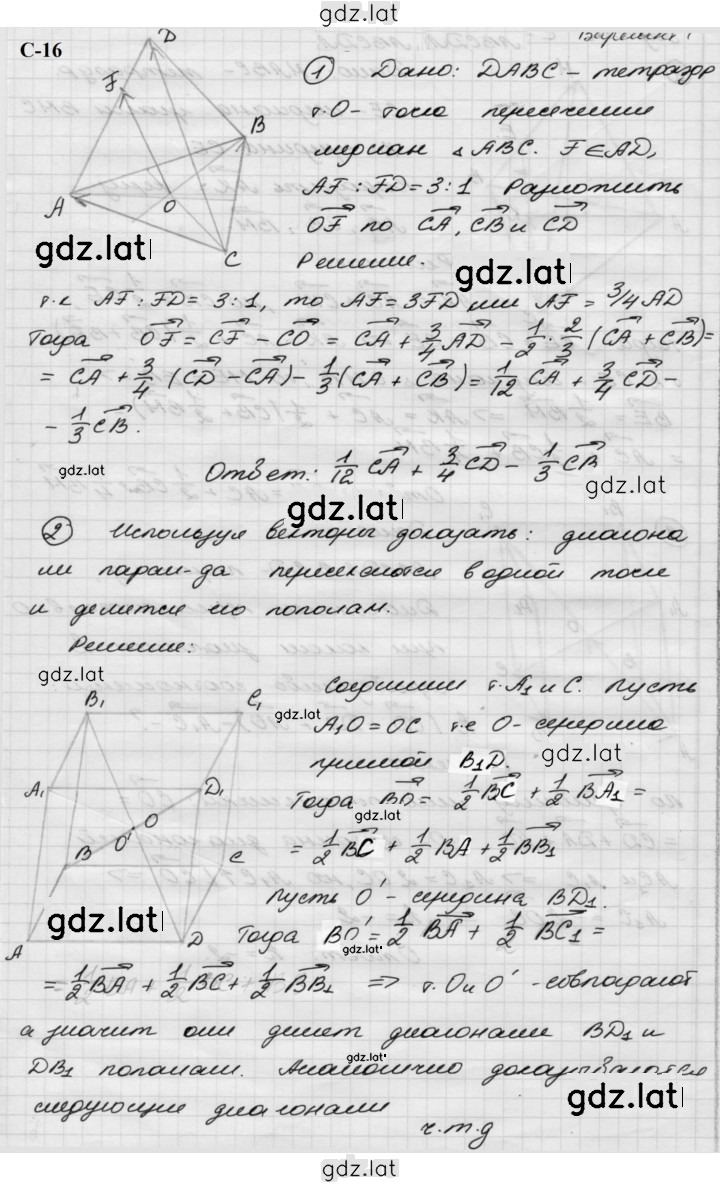 gdz.lat
С-16
Вариант 1
① Дано: DABC – тетраэдр
т.О – точка пересечения
медиан △ ABC. F∈AD,
AF : FD = 3 : 1 Разложить
OF по CA, CB и CD
D
F
B
A
O
C
gdz.lat
Решение.
gdz.lat
т.к AF : FD = 3 : 1, то AF = 3FD или AF = 3/4 AD
Тогда OF = CF – CO = CA + 3/4 AD – 1/2 · 2/3 (CA + CB) =
= CA + 3/4 (CD – CA) – 1/3 (CA + CB) = 1/12 CA + 3/4 CD –
– 1/3 CB.
gdz.lat
Ответ: 1/12 CA + 3/4 CD – 1/3 CB
gdz.lat
gdz.lat
② Используя векторы доказать: диагона
ли парал-да пересекаются в одной точке
и делятся ею пополам.
Решение:
gdz.lat
Соединим т. A₁ и C. Пусть
gdz.lat
A₁O = OC т.е O – середина
прямой B₁D.
gdz.lat
Тогда BO = 1/2 BC + 1/2 BA₁ =
gdz.lat
= 1/2 BC + 1/2 BA + 1/2 BB₁
B₁
C₁
A₁
D₁
O
O'
B
C
A
D
gdz.lat
Пусть O' – середина BD₁.
Тогда BO' = 1/2 BA + 1/2 BC₁ =
gdz.lat
= 1/2 BA + 1/2 BC + 1/2 BB₁ ⇒ т. O и O' – совпадают
а значит они делят диагонали BD₁ и
gdz.lat
DB₁ пополам. Аналогично доказываются
gdz.lat
следующие диагонали
ч.т.д
gdz.lat